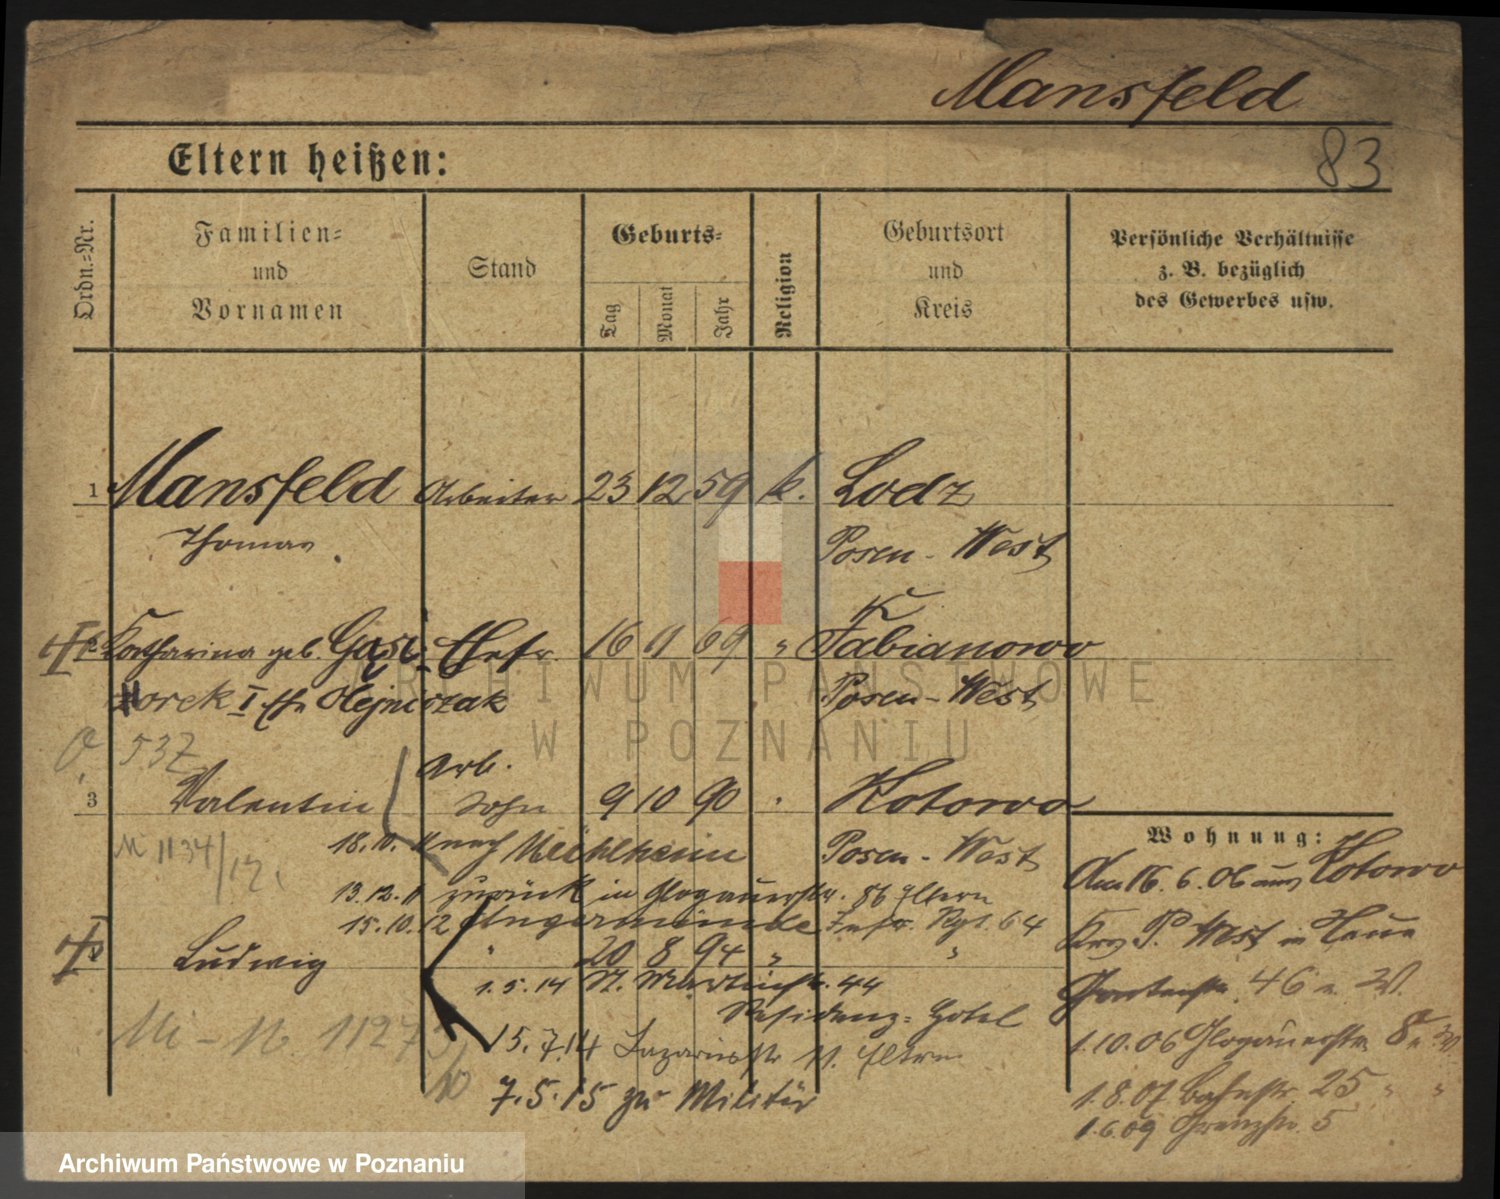 Mansfeld
83
Eltern heißen:
Ordn.-Nr.
Familien- und Vornamen
Stand
Geburts-
Tag
Monat
Jahr
Religion
Geburtsort und Kreis
Persönliche Verhältnisse
z. B. bezüglich
des Gewerbes usw.
1 Mansfeld Arbeiter 23 12 59 k. Lodz
Thomas Posen - West
Katharina geb. Ehefr. 16 11 69 " Fabianowo
Olejniczak Posen - West
537
Arb.
3 Valentin Sohn 9 10 90 Kotowo
Wohnung:
M 1134/12
18. nach Posen - West
Am 16.6.06 aus Kotowo
13.12.11 zurück in Glogauerstr. 86 Eltern
15.10.12 Angermünde Infr. Rgt. 64
Krs P. West in Neue
Ludwig " 20 8 94 " "
1.5.14 St. Martinstr. 44
Gartenstr. 46
Residenz-Hotel
Mi - N 11273/10
15.7.14 Lazarusstr 11. Eltern
1.10.06 Glogauerstr
7.5.15 zu Militär
1.8.07 Bahnstr. 25 " "
1.6.09 Grenzstr. 5
ARCHIWUM PAŃSTWOWE
W POZNANIU
Archiwum Państwowe w Poznaniu